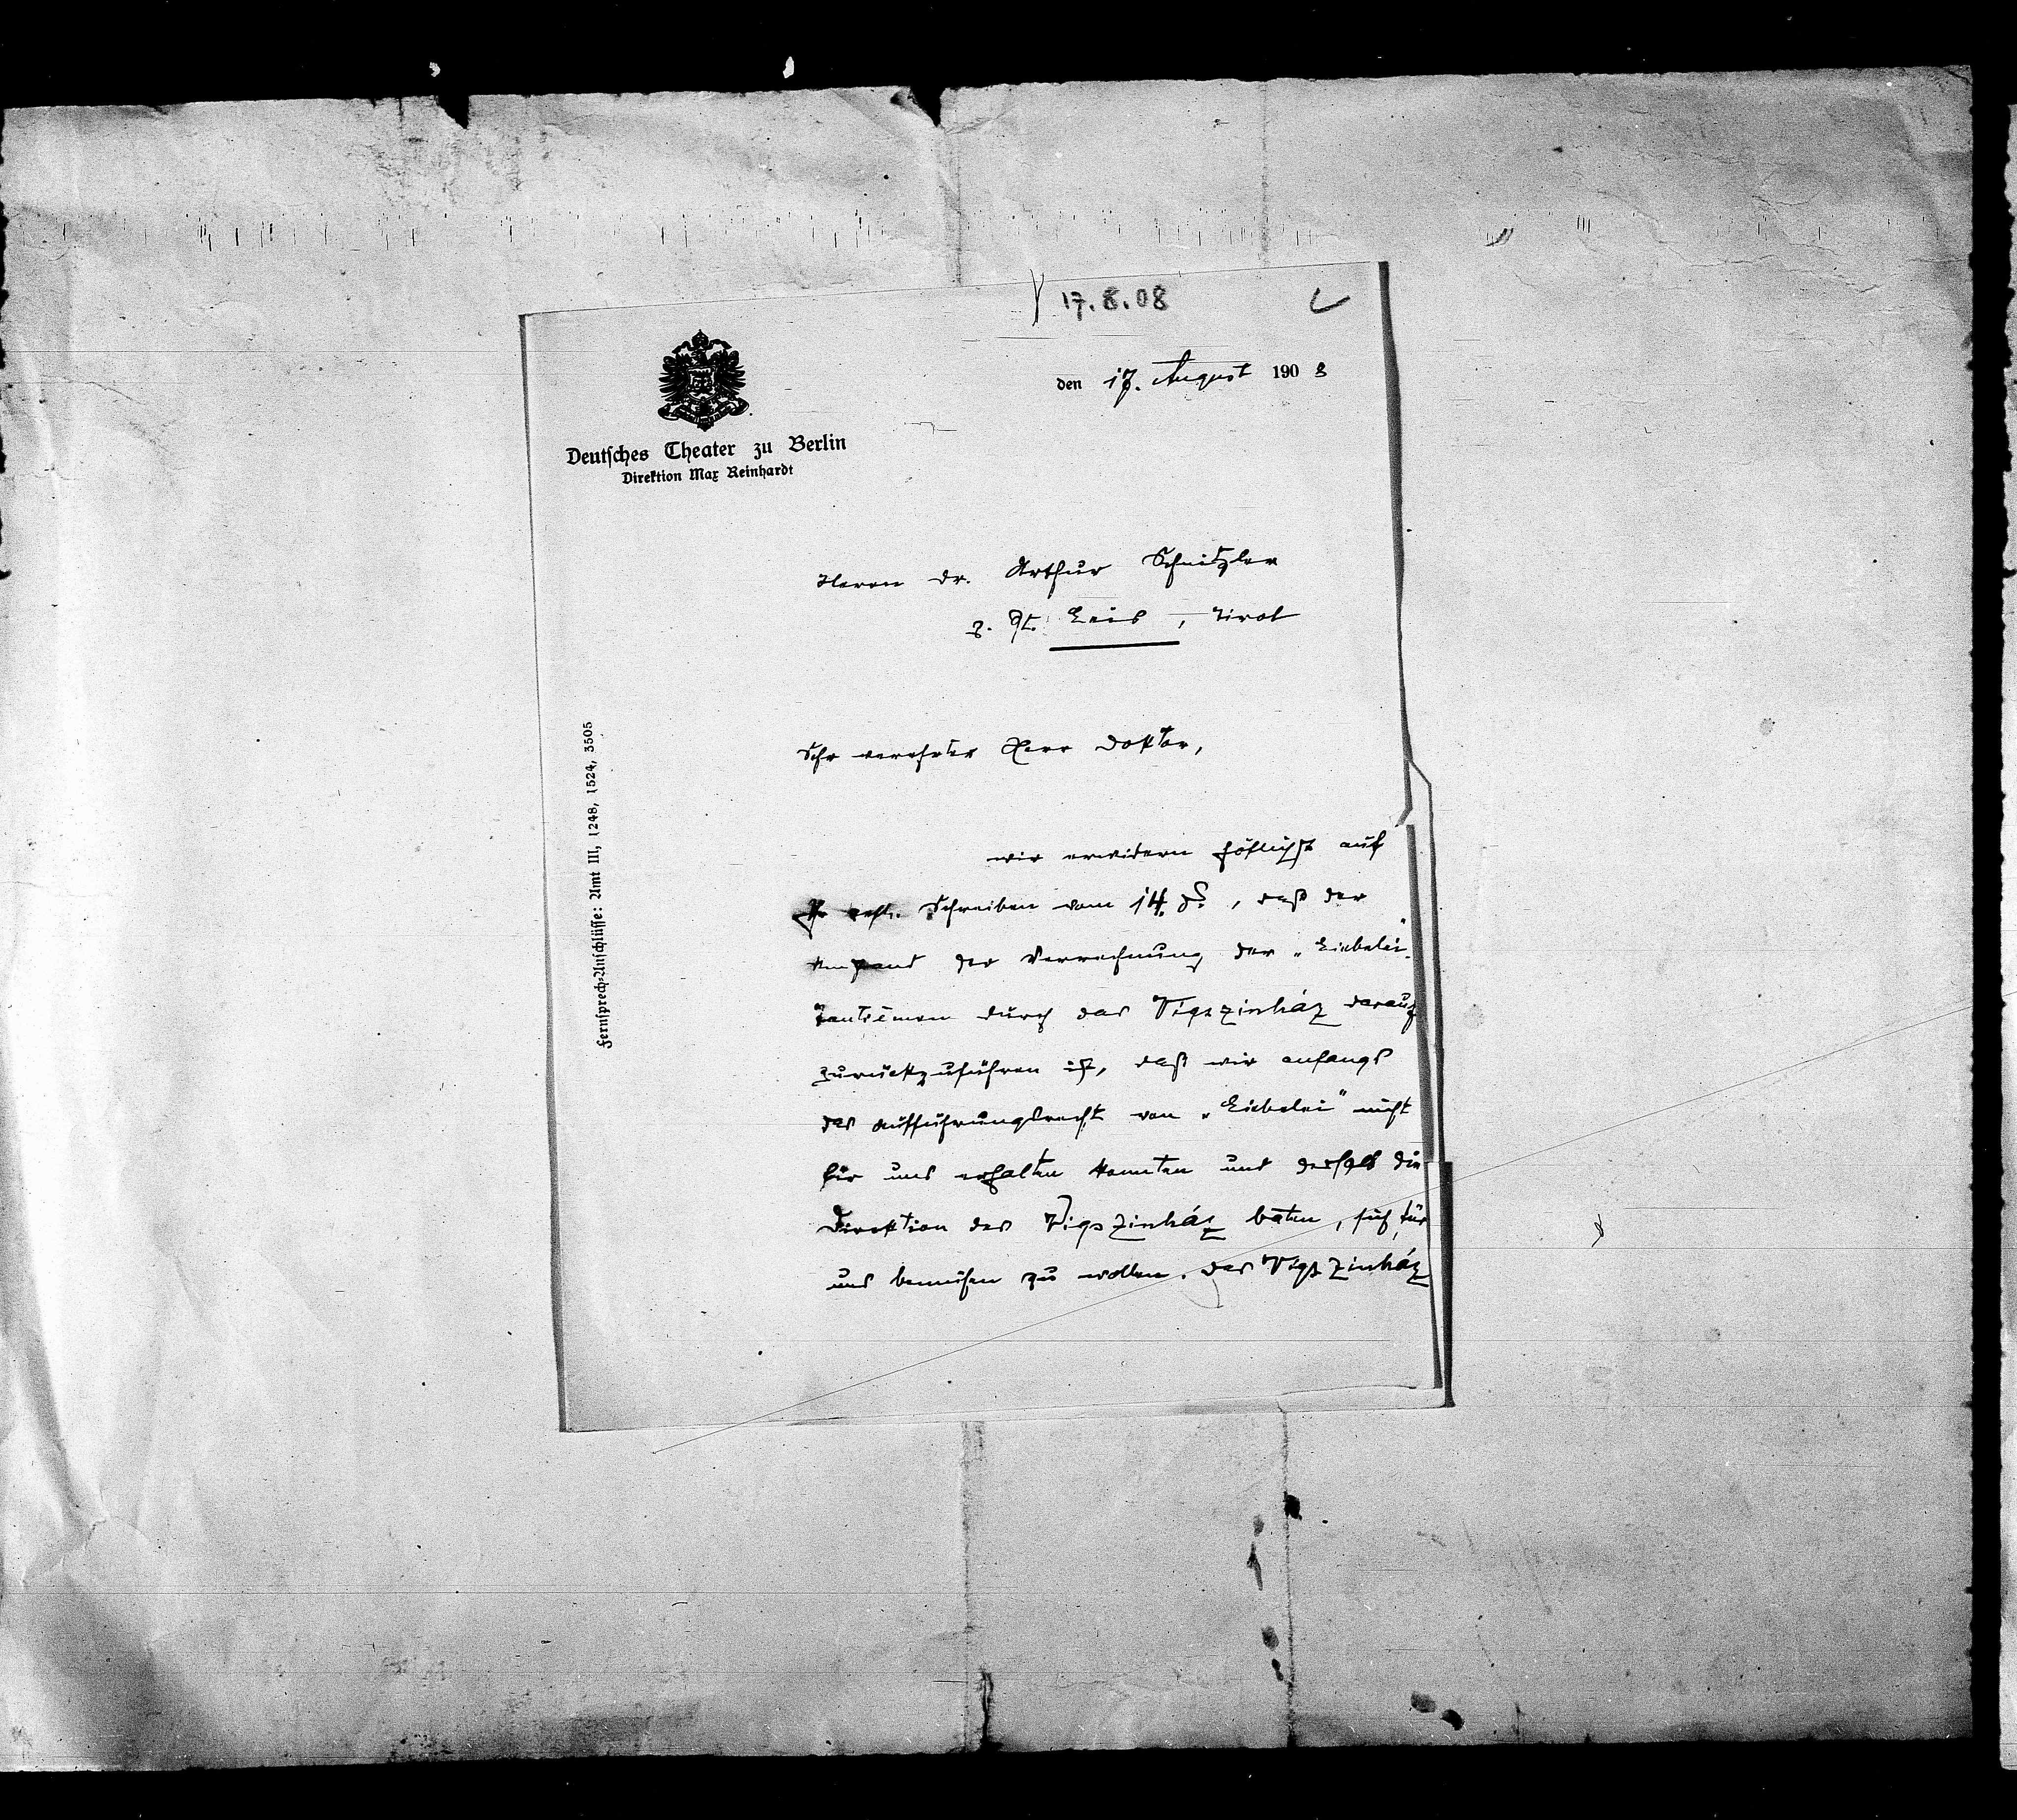 17.8.08
den 17. August 1908
Deutsches Theater zu Berlin
Direktion Max Reinhardt
Herrn Dr. Arthur Schnitzler
z. Zt. Seis, Tirol
Fernsprech-Anschlüsse: Amt III, 1248, 1524, 3505
Sehr verehrter Herr Doktor,
wir erwidern höflichst auf
Ihr gesch. Schreiben vom 14. d., daß der
der Verrechnung der „Liebelei"-
Tantièmen durch das Vigszinház darauf
zurückzuführen ist, daß wir anfangs
das Aufführungsrecht von „Liebelei" nicht
für uns erhalten konnten und deshalb die
Direktion des Vigszinház baten, sich für
uns bemühen zu wollen. Das Vigszinház